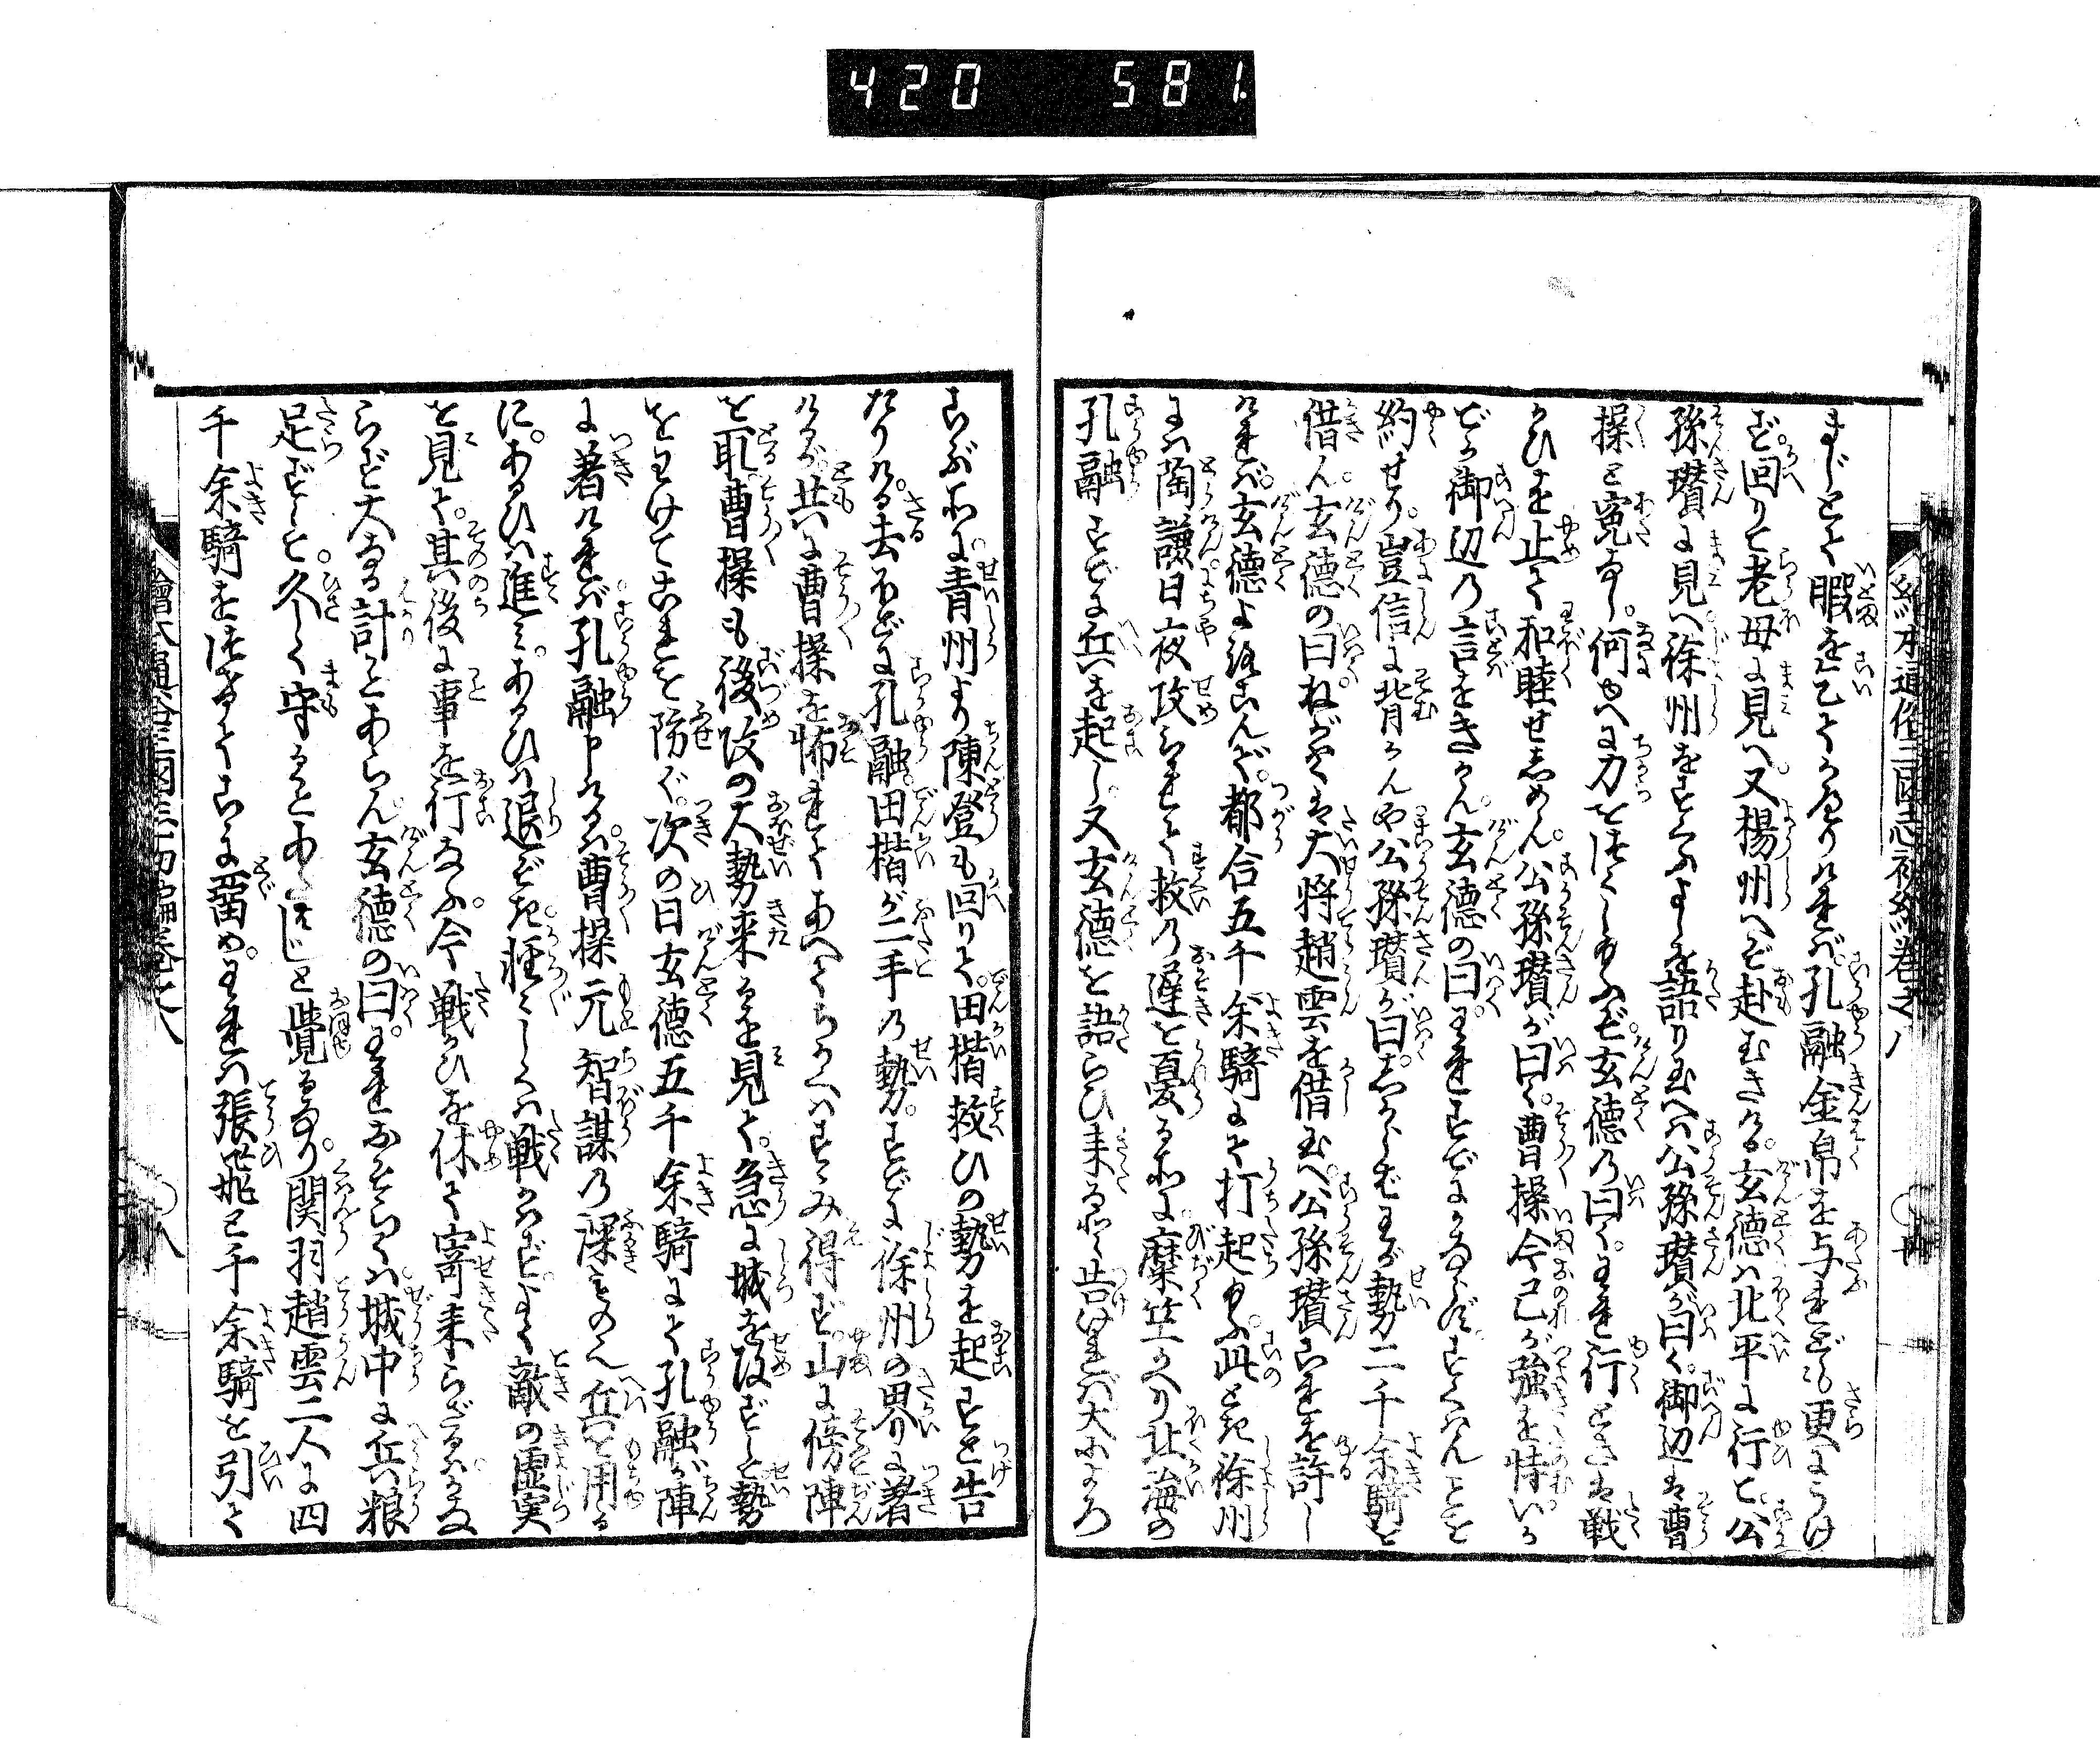 420 581
まじとて暇を乞てかへりければ。孔融金帛を与れども更にうけ
ず。回りて老母に見へ。又楊州へぞ赴むきける。玄徳は北平に行て。公
孫瓚に見へ。徐州をすくふよしを語り玉へは公孫瓚が曰く。御辺は曹
操と冤なし。何ゆへに力をつくし玉ふぞ。玄徳の曰く。われ行ときは戦
かひを止て和睦せしめん。公孫瓚が曰く。曹操今己が強を恃いか
でか御辺の言をきかん。玄徳の曰。われすでにかならずすくはんことを
約せり。豈信に背かんや公孫瓚が曰。しからばわが勢二千余騎を
借ん。玄徳の曰。ねがはくは大将趙雲を借玉へ。公孫瓚これを許し
ければ。玄徳よろこんで。都合五千余騎にて打起玉ふ。此とき徐州
には陶謙日夜攻られて救の遅を憂る所に。糜竺かへり北海の
孔融すでに兵を起し。又玄徳を語らひ来る由告ければ大によろ
こぶ所に。青州より陳登も回りて。田楷救ひの勢を起すと告
たりける。去ほどに孔融。田楷が二手の勢。すでに徐州の界に着
けるが。共に曹操を怖れてあへてちかくはすゝみ得ず。山に傍陣
を取。曹操も後攻の大勢来るを見て。急に城を攻ずして勢
をわけてこれを防ぐ。次の日玄徳五千余騎にて孔融が陣
に着ければ。孔融申しけるは。曹操元智謀の深きもの也兵を用る
に。あるひは進み。あるひは退ぞき。軽々しくは戦かはずよく敵の虚実
を見て。其後に事を行なふ。今戦かひを休て寄来らざるはかな
らず大なる計ことあらん。玄徳の曰。われおそらくは城中に兵粮
足ずして。久しく守ることあたはじと覚るなり。関羽趙雲二人に四
千余騎をつけてこゝに留め。われは張飛と千余騎を引て